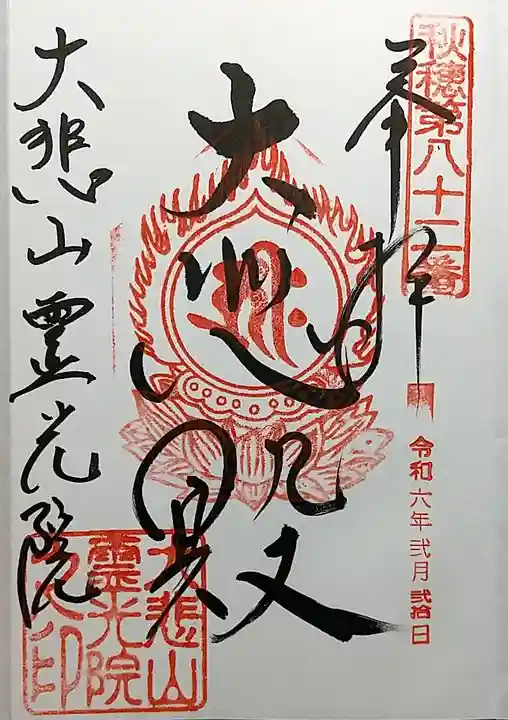 秋穂第八十二番
奉拝
令和六年弐月弐拾日
大悲殿
大悲山霊光院
大悲山
霊光院
之印